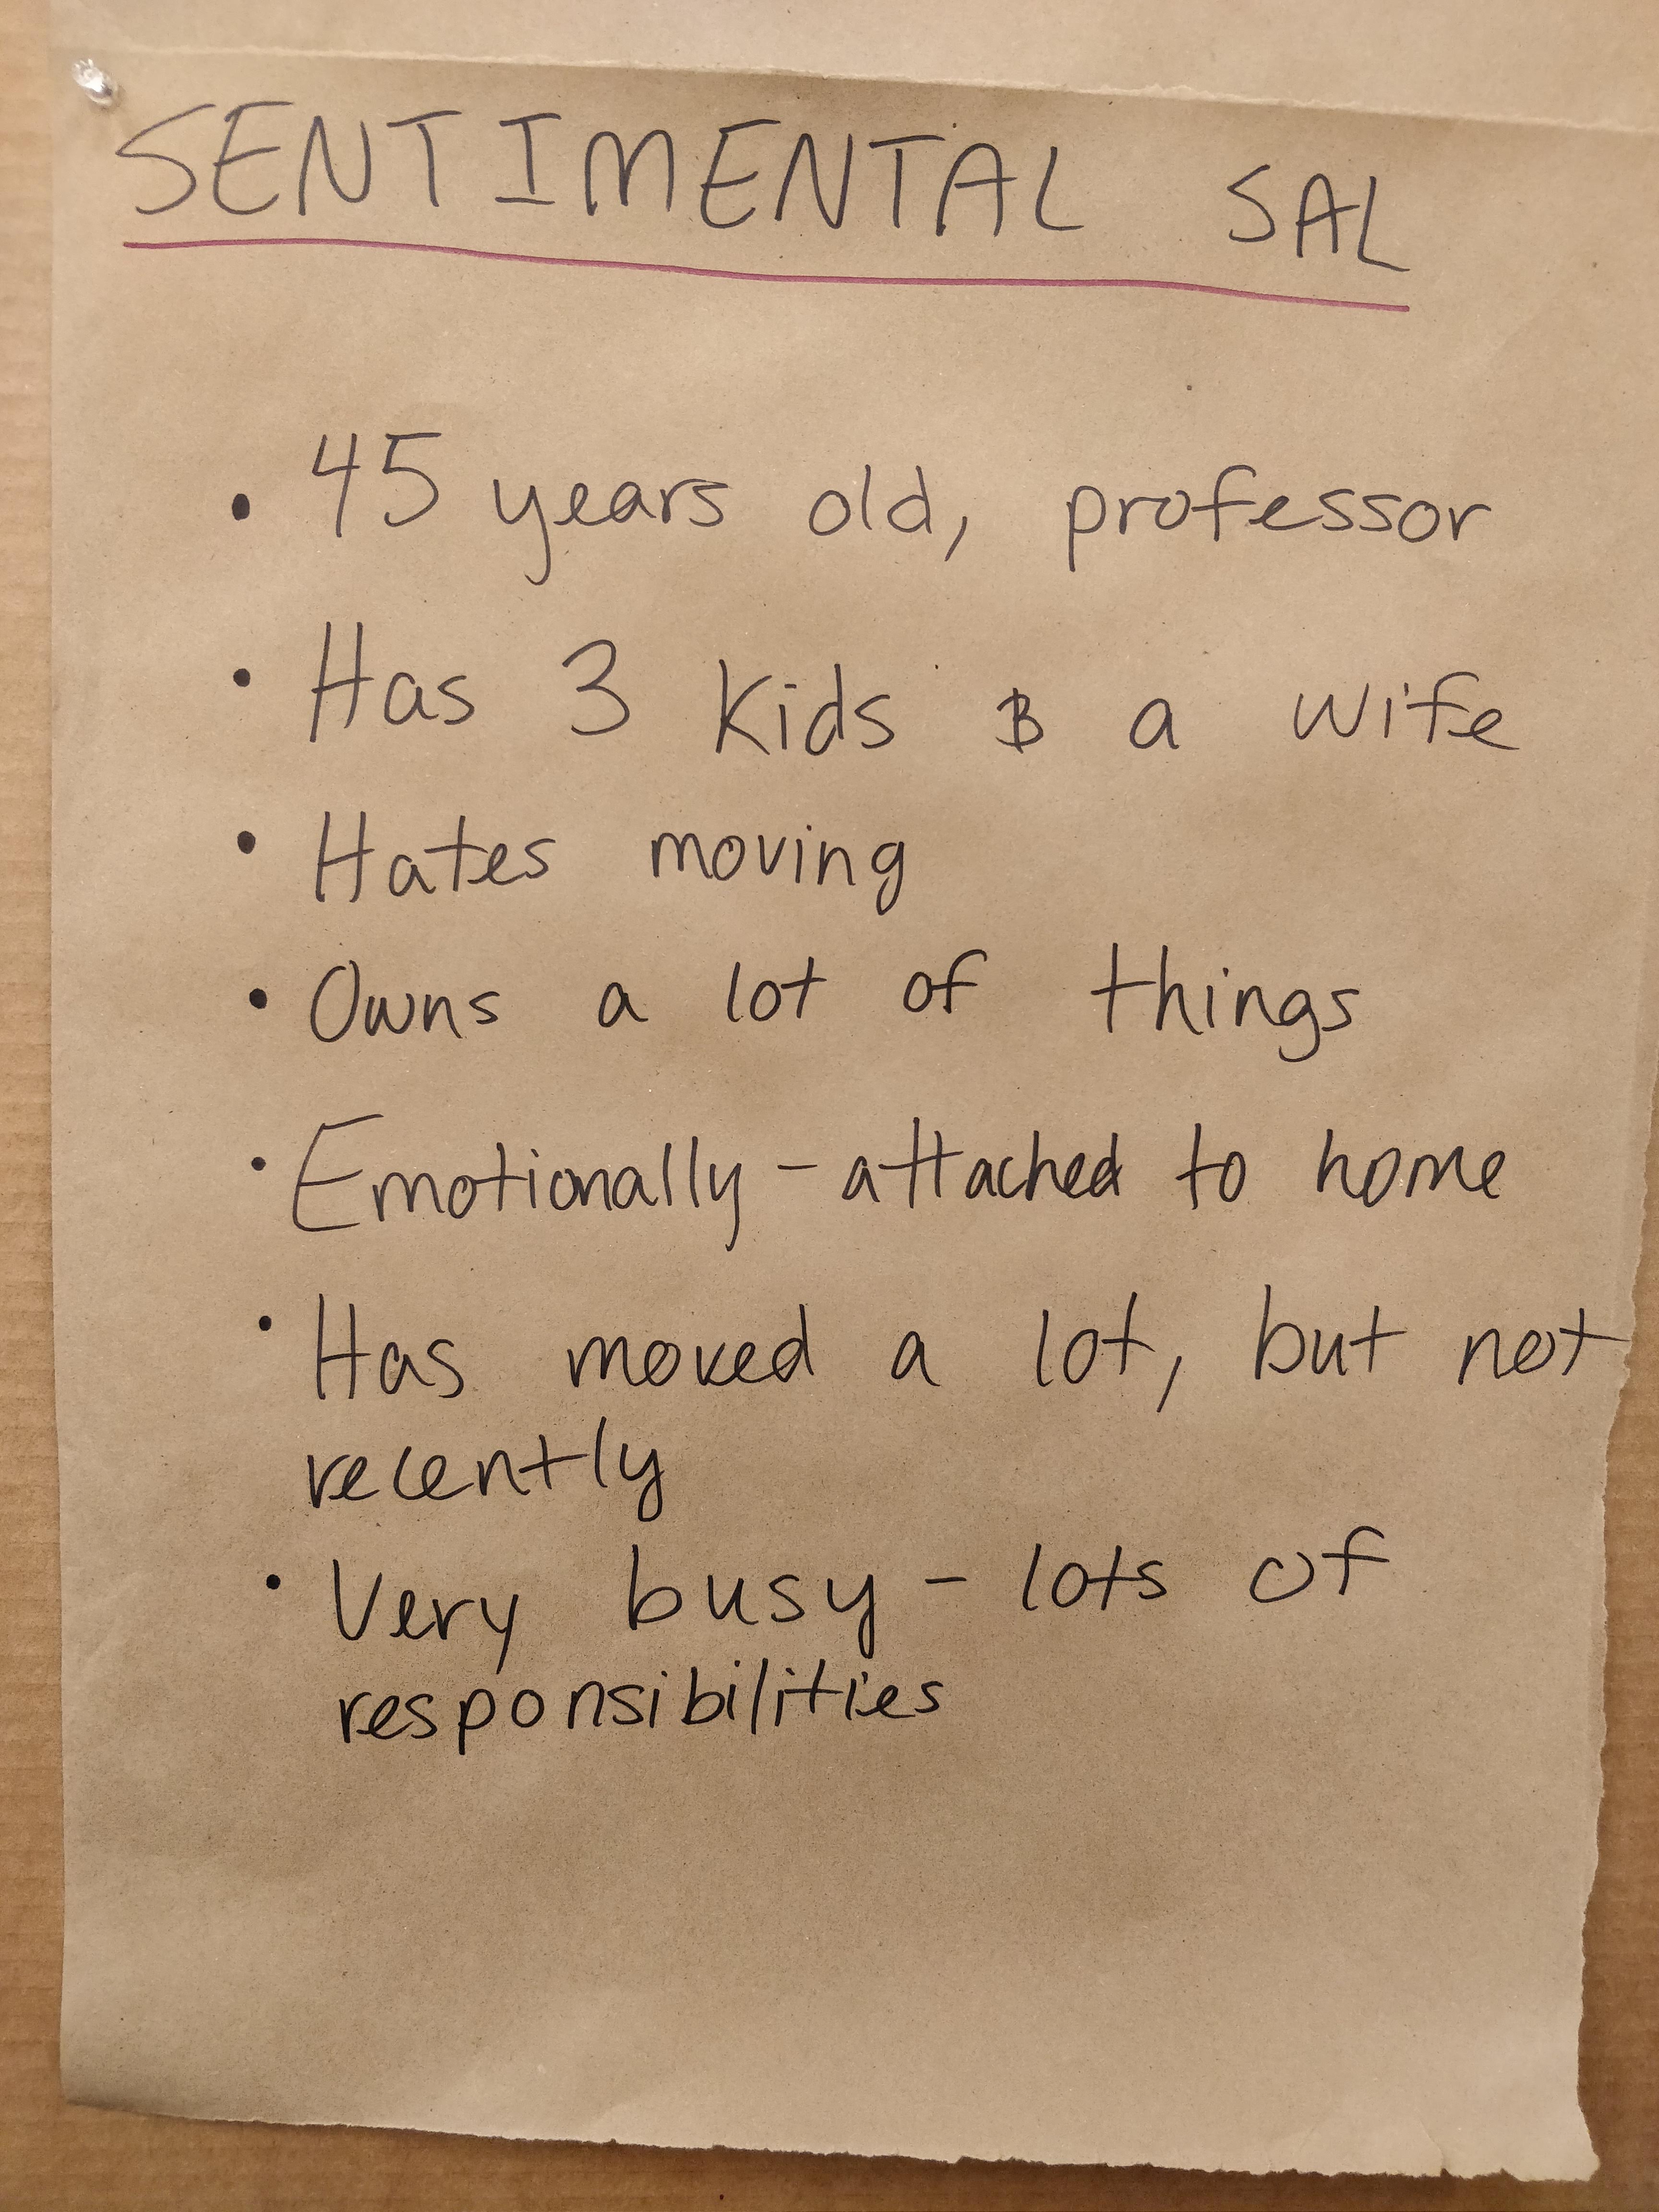 SENTIMENTAL SAL
• 45 years old, professor
• Has 3 kids & a wife
• Hates moving
• Owns a lot of things
• Emotionally - attached to home
• Has moved a lot, but not
recently
• Very busy - lots of
responsibilities